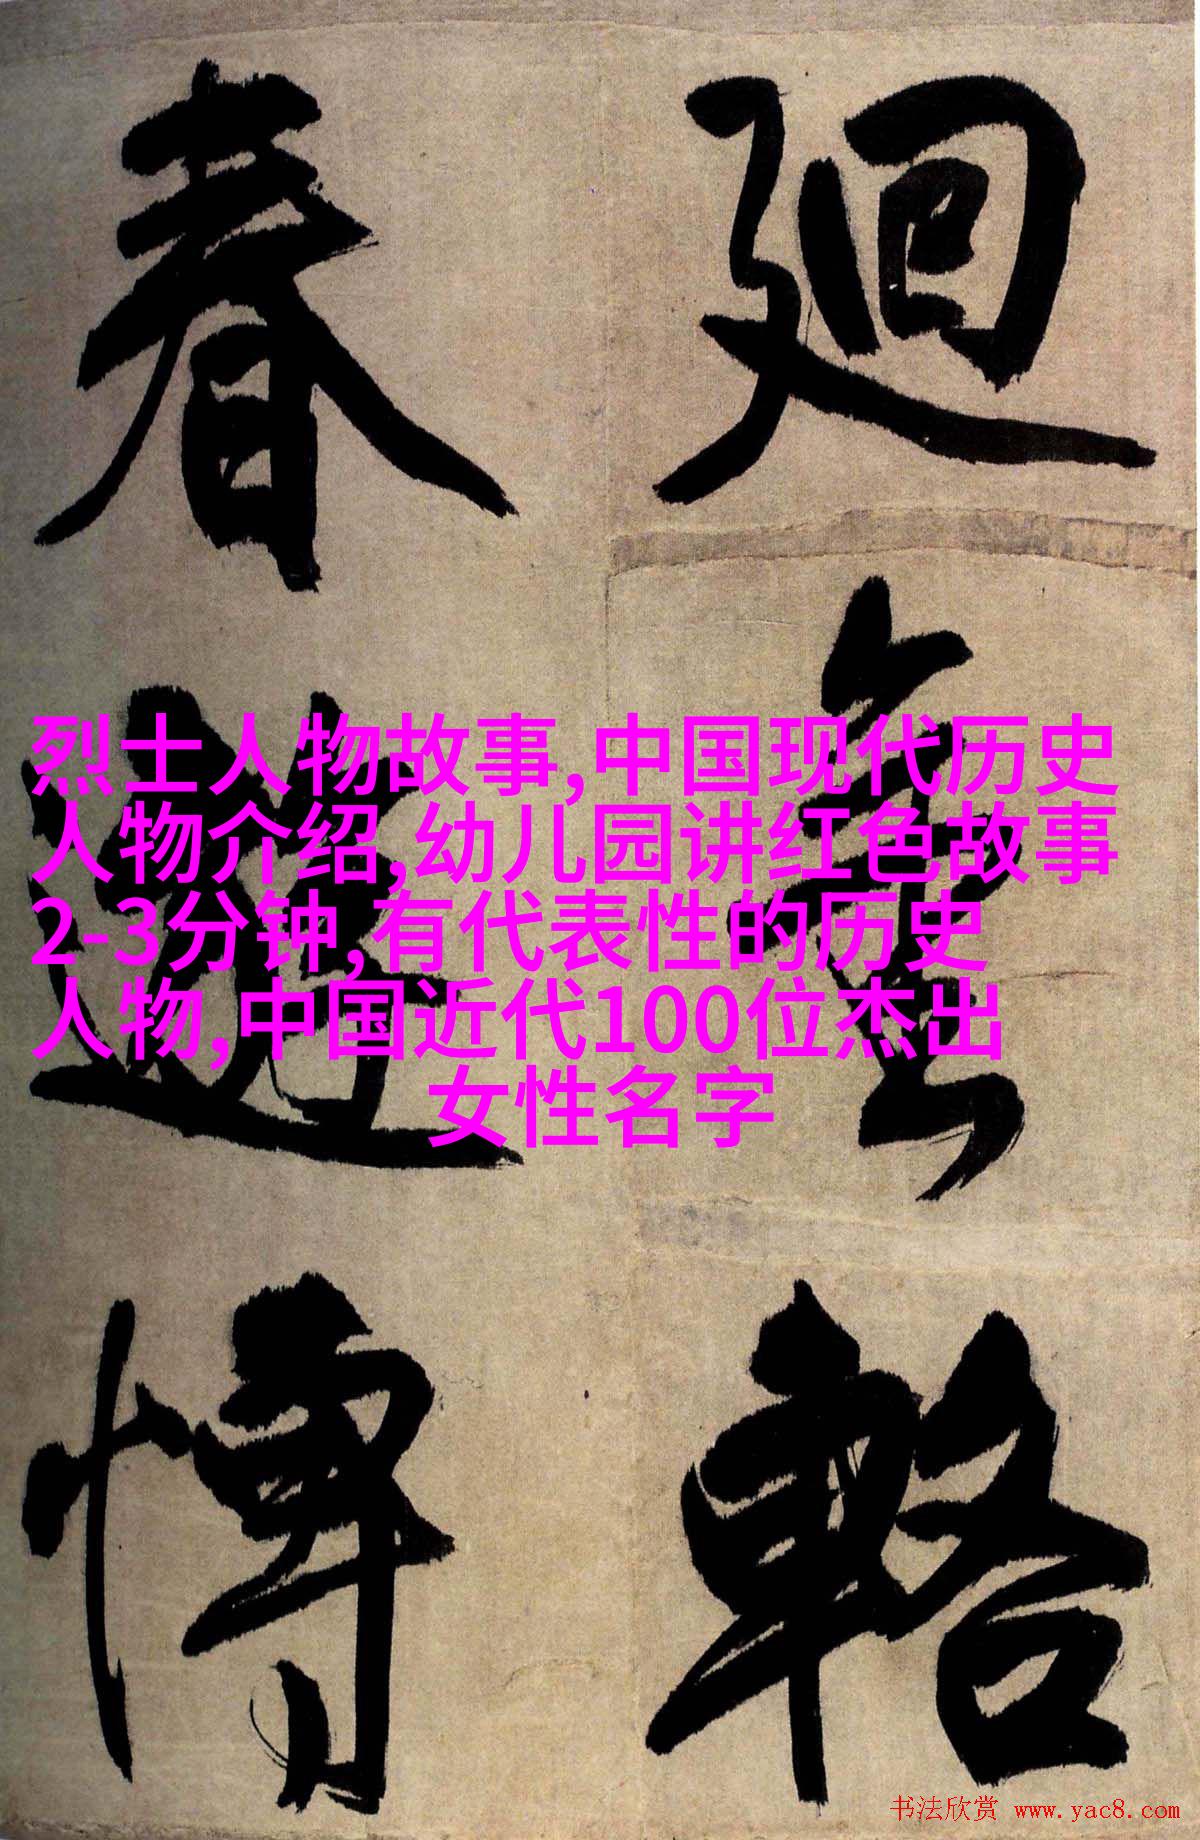 廻輅
春遊愽
烈士人物故事,中国现代历史
人物介绍,幼儿园讲红色故事
2-3分钟,有代表性的历史
人物,中国近代100位杰出
女性名字
书法欣赏 www.yac8.com